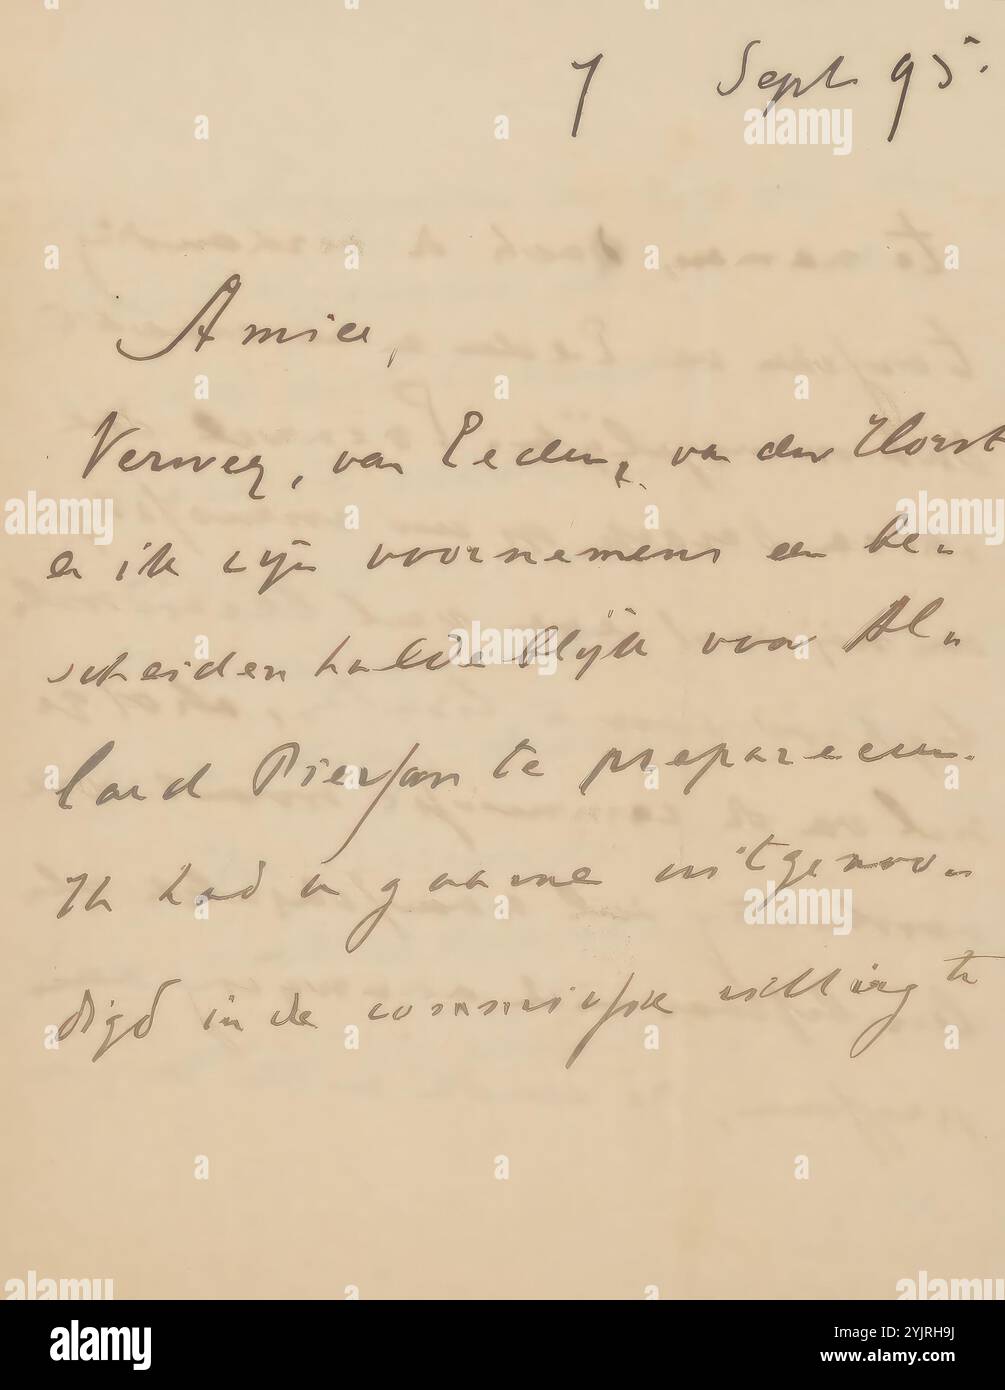 7 Sept 95.
Amice,
Verwey, van Eeden, van der Horst
en ik zijn voornemens een be-
scheiden huldeblijk voor Al-
lard Pierson te prepareeren.
Ik had u gaarne uitgenoo-
digd in de commissie zitting te
alamy
Image ID: 2YJRH9J
www.alamy.com